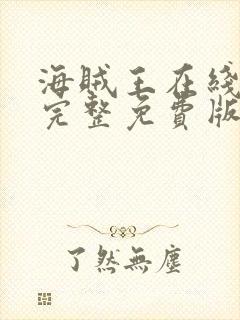 海賊王在綫
完整免費版
了然無塵